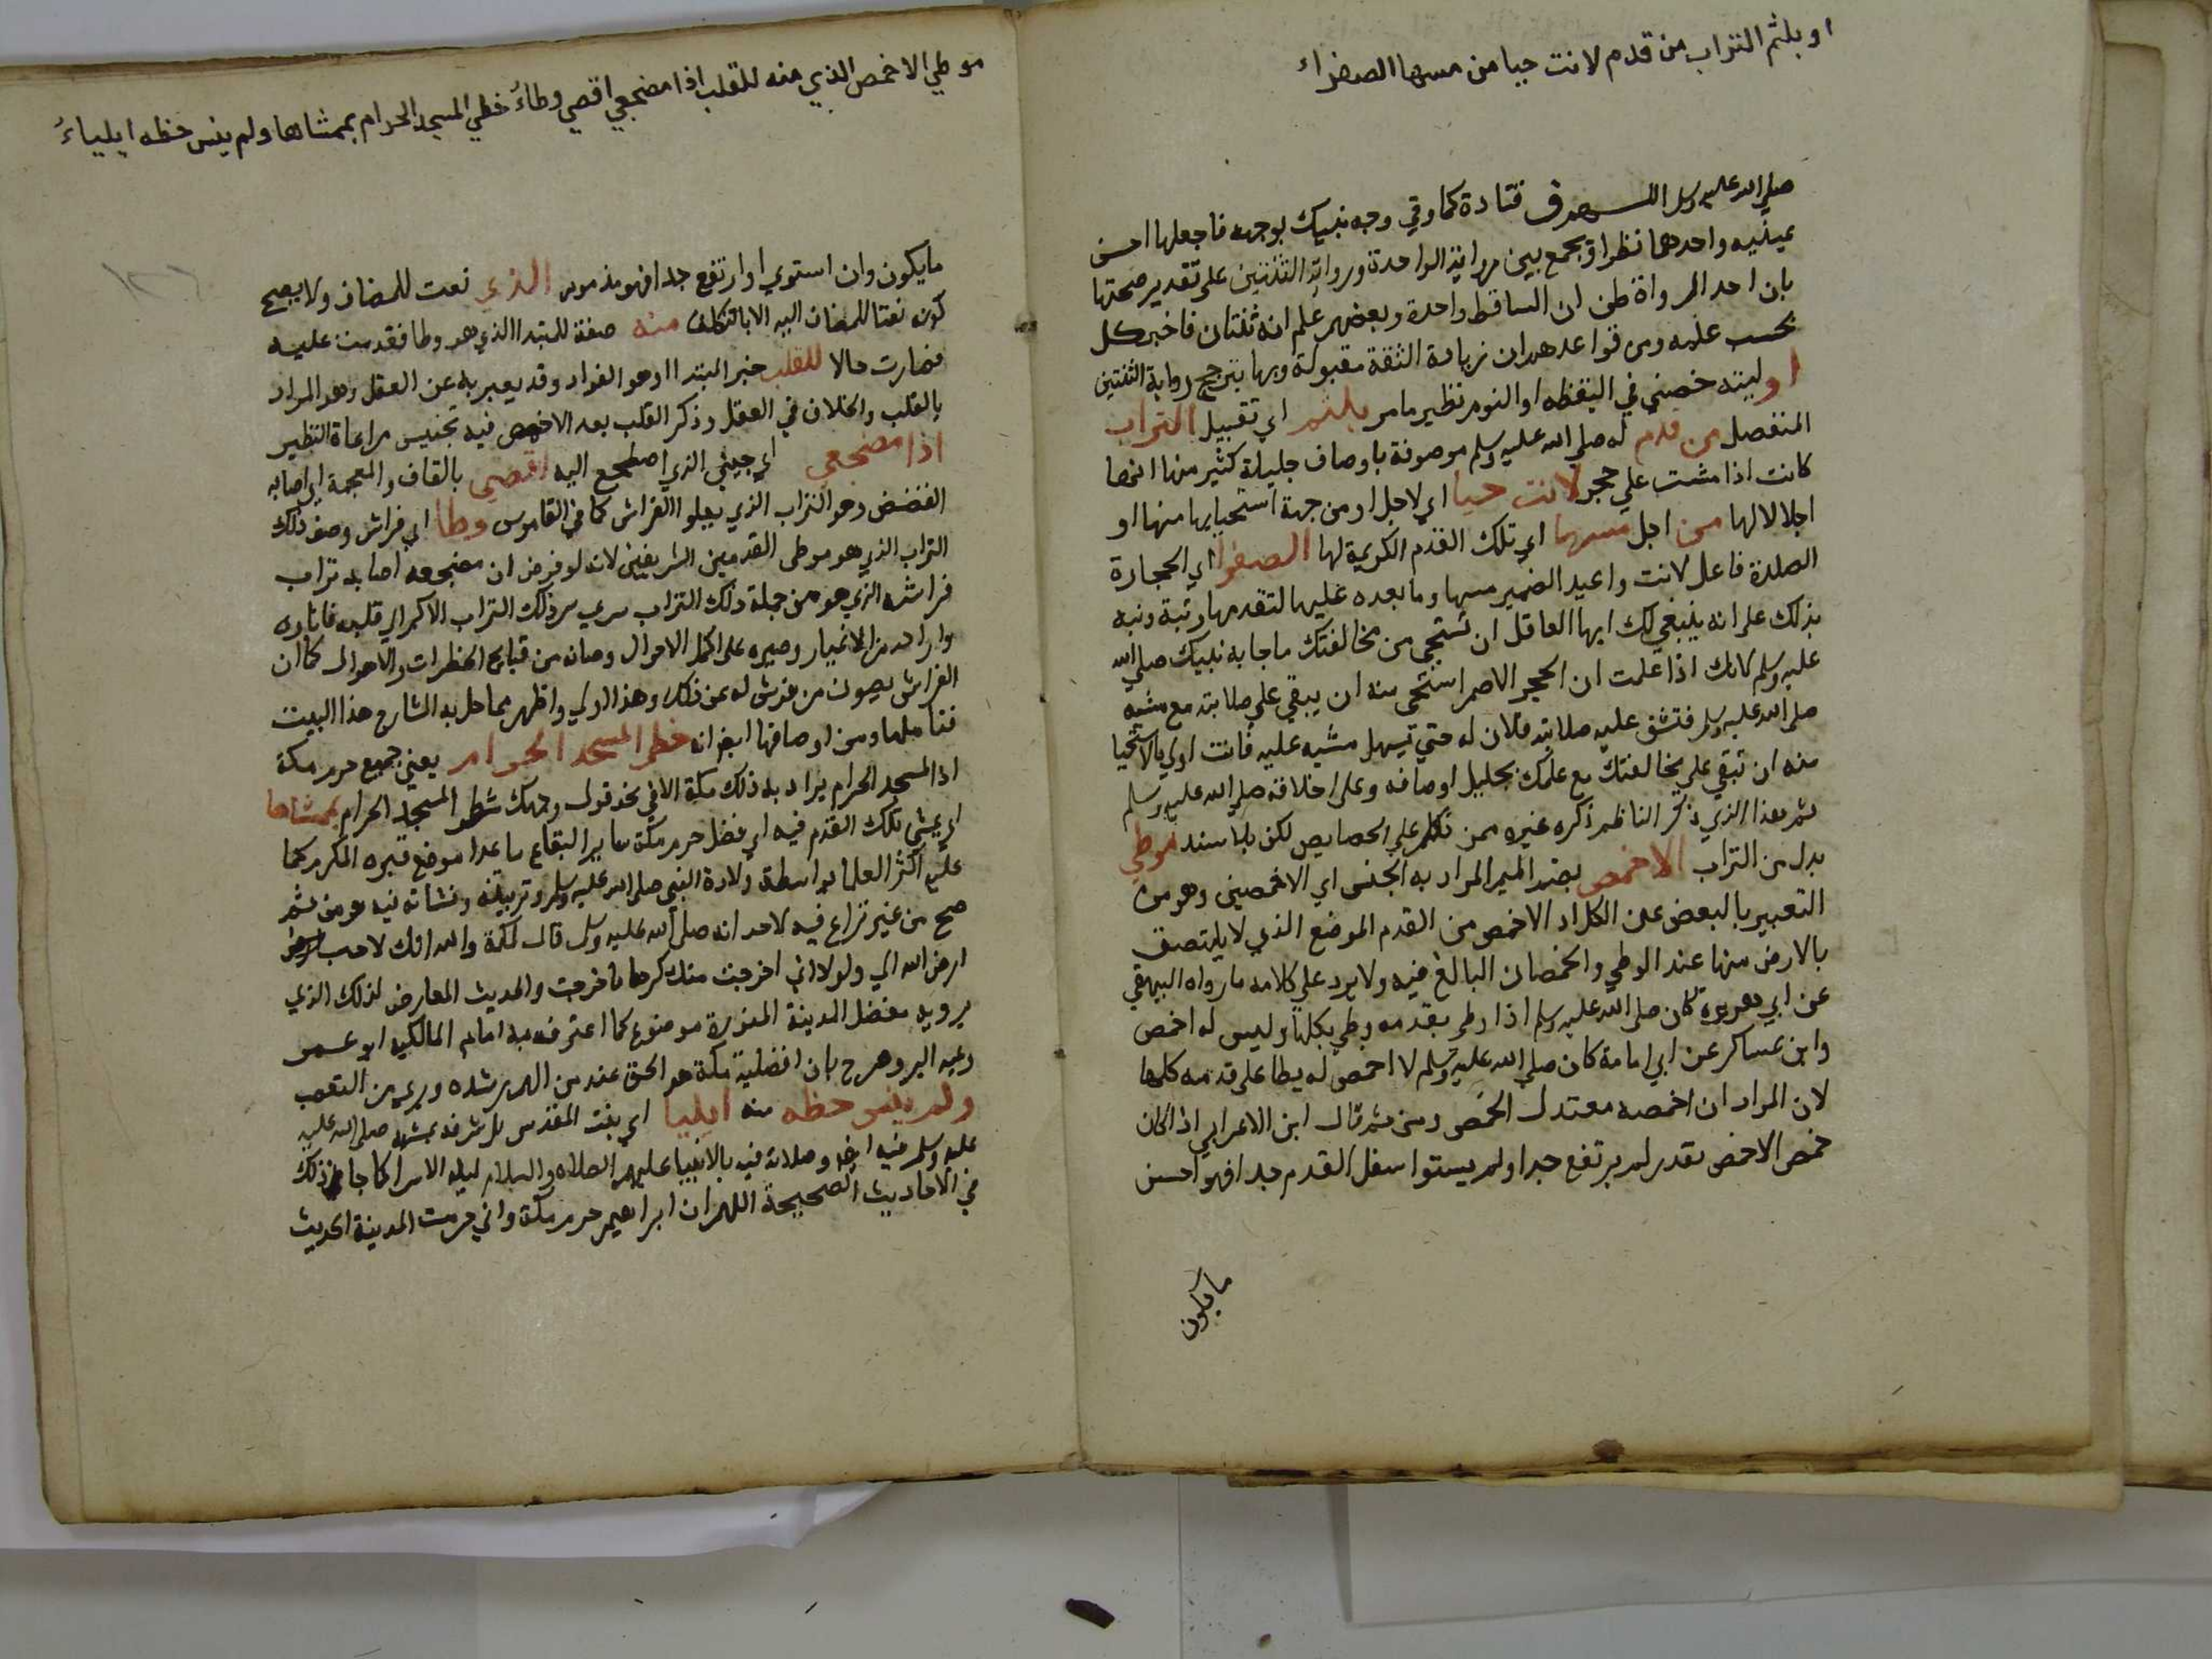 او بلثم التراب من قدم لانت حيا من مسها الصفواء
صلي الله عليه وسلم اللهم ق قتادة كما وقي وجه نبيك بوجهه فاجعلها احسن
عينيه واحدهما نظرا ويجمع بين رواية الواحدة ورواية الثنتين على تقدير صحتها
بان احد الرواة ظن ان الساقط واحدة وبعضهم علم انه ثنتان فاخبر كل
بحسب علمه ومن قواعدهم ان زيادة الثقة مقبولة وبها يترجح رواية الثنتين
او ليته خصني في اليقظه او النوم نظير مامر بلثم اي تقبيل التراب
المنفصل من قدم له صلي الله عليه وسلم موصوفة باوصاف جليلة كثير منها انها
كانت اذا مشت علي حجر لانت حيا اي لاجل او من جهة استحيايها منها او
اجلالا لها من اجل مسها اي تلك القدم الكريمة لها الصفوا اي الحجارة
الصلدة فاعل لانت واعيد الضمير مسها وما بعده عليها لتقدمها رتبة ونبه
بذلك على انه ينبغي لك ايها العاقل ان تستحي من مخالفتك ماجا به نبيك صلي الله
عليه وسلم لانك اذا علمت ان الحجر الاصم استحى منه ان يبقي علي صلابته مع مشيه
صلي الله عليه وسلم فتشق عليه صلابته فلان له حتي تيسهل مشيه عليه فانت اولي بالاستحيا
منه ان تبقي علي مخالفتك مع علمك بجليل اوصافه وعلى اخلاقه صلي الله عليه وسلم
ثم هذا الذي ذكر الناظم ذكره غيره ممن تكلم علي الخصايص لكن بلا سند موطي
بدل من التراب الاخمص بفتح الميم المراد به الجنس اي الاخمصين وهو من
التعبير بالبعض عن الكل اذ الاخمص من القدم الموضع الذي لا يلتصق
بالارض منها عند الوطي والخمصان البالغ فيه ولا يرد علي كلامه ما رواه البيهقي
عن ابي هريرة كان صلي الله عليه وسلم اذا وطي بقدمه وطي بكلها وليس له اخمص
وابن عساكر عن ابي امامة كان صلي الله عليه وسلم لا اخمص له يطا على قدمه كلها
لان المراد ان اخمصه معتدل الخمص ومن ثم قال ابن الاعرابي اذا كان
خمص الاخمص بقدر لم يرتفع جدا ولم يستوا سفل القدم جدا فهو احسن
مايكون
موطي الاخمص الذي منه للقلب اذا مضجعي اقض وطاءُ خظي المسجد الحرام بممشاها ولم ينس حظه ايلياءُ
مايكون وان استوي او ارتفع جدا فهو مذموم الذي نعت للمضاف ولا يصح
كونه نعتا للمضاف اليه الا بالتكلف منه صفة للمبتدا الذي هو وطا فقدمت عليه
فصارت حالا للقلب خبر المبتدا وهو الفواد وقد يعبر به عن العقل وهو المراد
بالقلب والخلاف في العقل وذكر القلب بعد الاخمص فيه تجنيس مراعاة النظير
اذا مضجعي اي جنبي الذي اضطجع اليه اقض بالقاف والمعجمة اي اصابه
القضض وهو التراب الذي يعلوا الفراش كما في القاموس وطا اي فراش وصف ذلك
التراب الذي هو موطى القدمين الشريفين لانه لو فرض ان مضجعه اصابه تراب
فراشه الذي هو من جملة ذلك التراب سري سر ذلك التراب الاكمر الي قلبه فاناره
واراحه من الاغيار وصيره على اكمل الاحوال وصانه من قبايح الخطرات والاحوال كما ان
الفراش يصون من فرش له عن ذلك وهذا اولي واظهر مما حل به الشارح هذا البيت
فتاملها ومن اوصافها ايضا انه خظي المسجد الحرام يعني جميع حرم مكة
اذ المسجد الحرام يراد به ذلك مكة الا في نحو قول وجهك شطر المسجد الحرام بممشاها
اي بمشي تلك القدم فيه اي فضل حرم مكة ساير البقاع ما عدا موضع قبره المكرم كما
عليه اكثر العلما بواسطة ولادة النبي صلي الله عليه وسلم وتربيته ونشاته فيه ومن ثم
صح من غير نزاع فيه لاحد انه صلي الله عليه وسلم قال لمكة والله انك لاحب
ارض الله الي ولولا اني اخرجت منك كرها ما خرجت والحديث المعارض لذلك الذي
يرويه مفضل المدينة المنورة موضوع كما اعترف به امام المالكيه ابو عمر
وغيره وصرح بان افضلية مكة هو الحق عند من الهم رشده وبري من التعصب
ولم ينس حظه منه ايليا اي بيت المقدس بل شرفه بمشيه صلي الله عليه
عليه وسلم فيه ايضا وصلاته فيه بالانبيا عليهم الصلاه والسلام ليله الاسرا كما جا ذلك
في الاحاديث الصحيحة اللهم ان ابراهيم حرم مكة واني حرمت المدينة الحديث